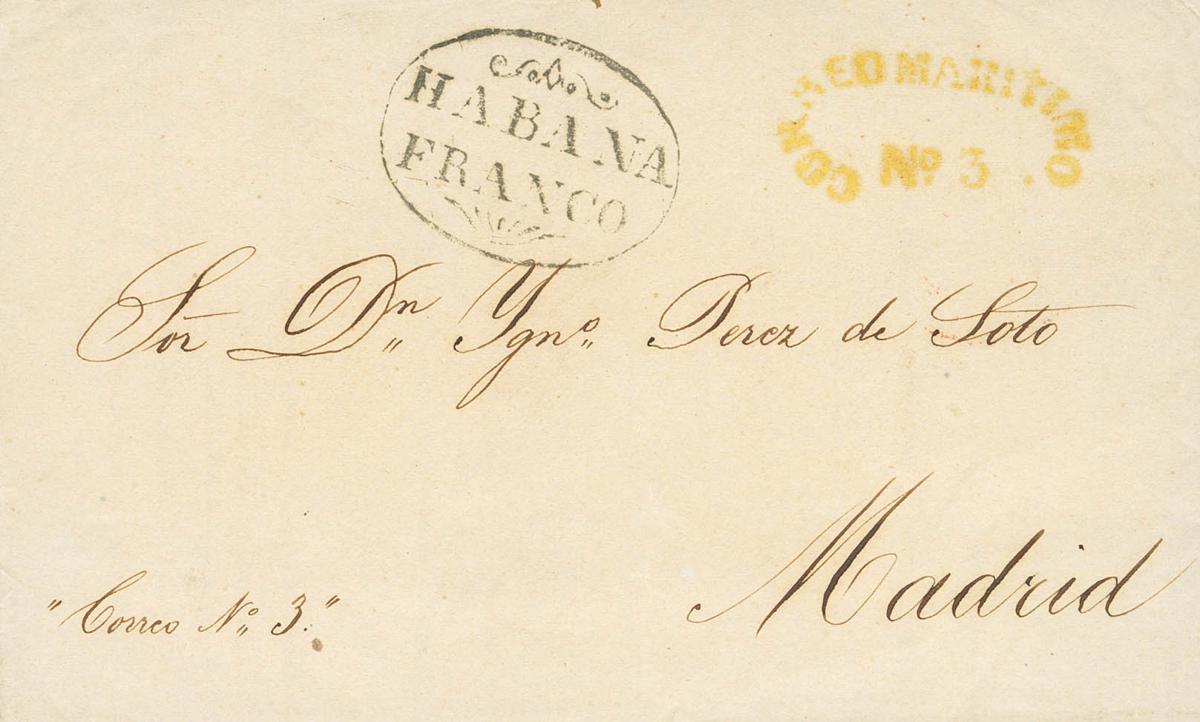 HABANA
FRANCO
CORREO MARITIMO
No 3
Sor Dn Ygno Perez de Soto
Madrid
"Correo No 3."